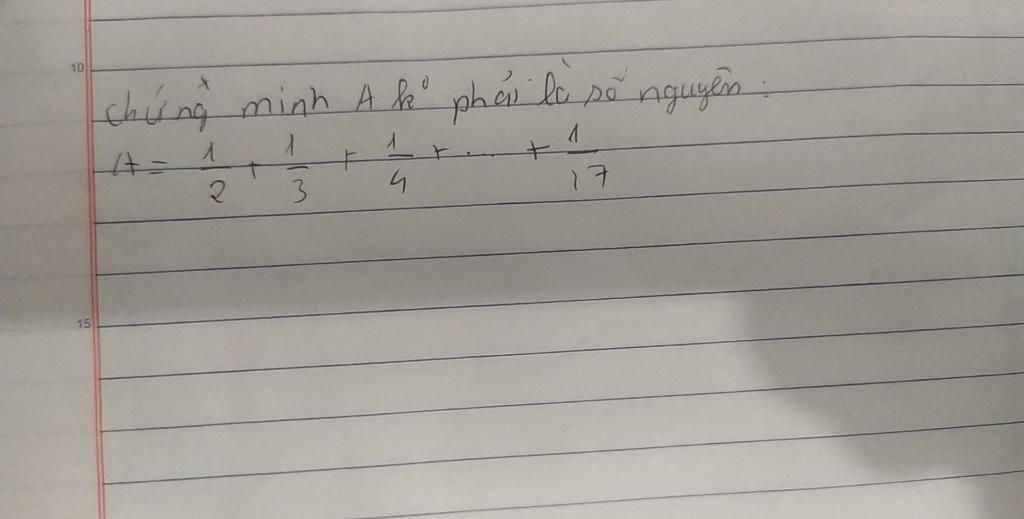 10
chứng minh A ko phải là số nguyên :
A = 1/2 + 1/3 + 1/4 + ... + 1/17
15